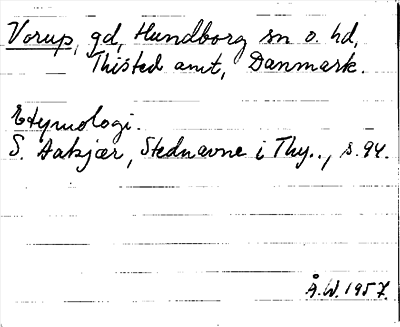 Vorup, gd, Hundborg sn o. hd,
Thisted amt, Danmark.
Etymologi.
S. Aakjær, Stednavne i Thy.., s. 94.
Å.W. 1957.